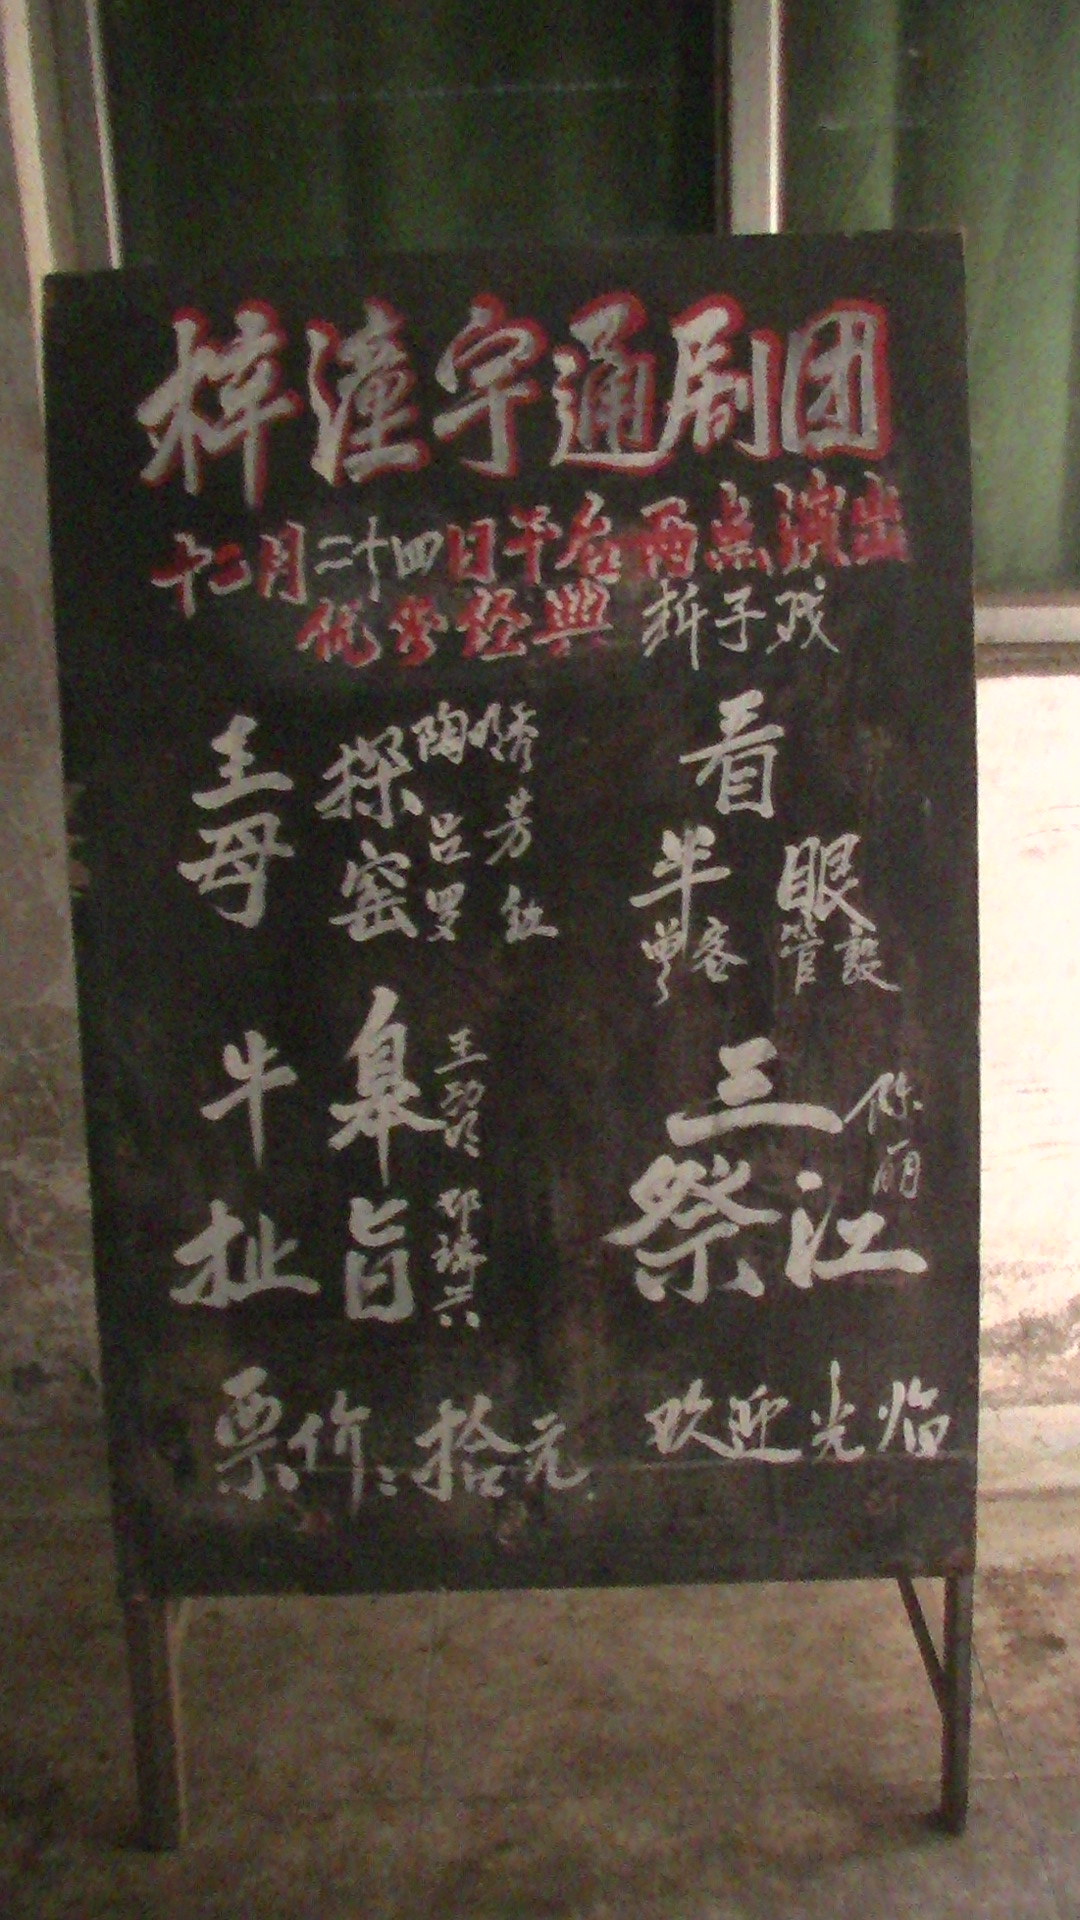 梓潼宇通剧团
十二月二十四日午后两点演出
优秀经典 折子戏
王母
探窑
陶
芳
吕
罗
看
半 眼
客 管
牛
皋
扯
旨
王
邓
三
祭江
陈丽
票价:拾元 欢迎光临